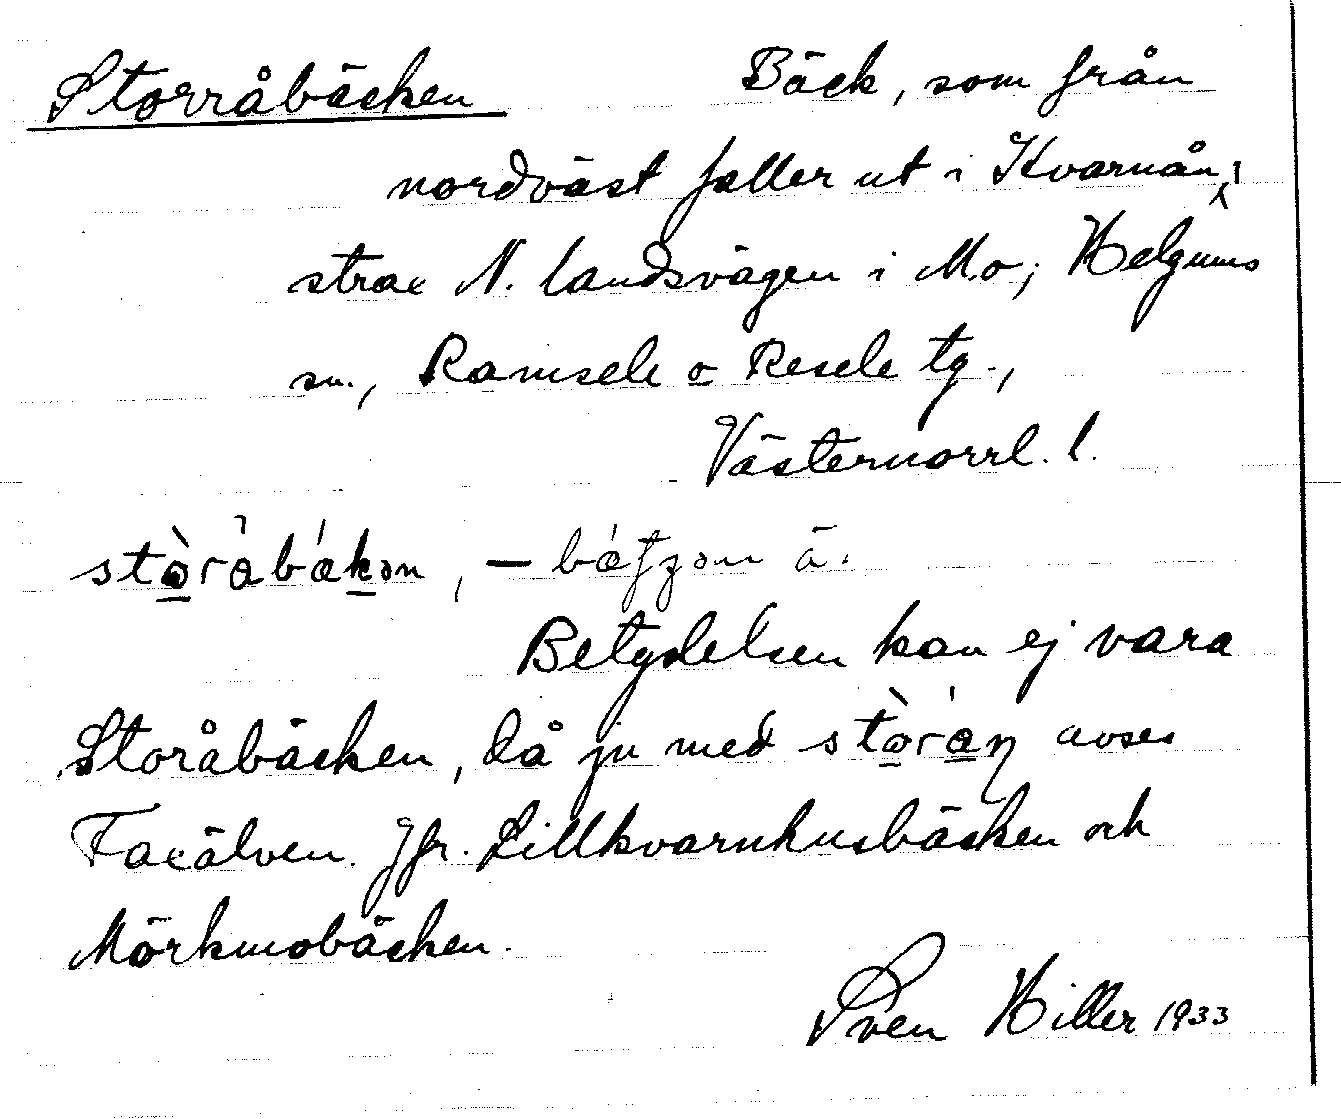 Storråbäcken Bäck, som från
nordväst faller ut i Kvarnån,
strax N. landsvägen i Mo; Helgums
sn., Ramsele o Resele tg.,
Västernorrl. l.
stòråbákən, –
Betydelsen kan ej vara
Storåbäcken, då ju med stòràn avses
Faxälven. Jfr. Lillkvarnhusbäcken och
Mörkmobäcken.
Sven Hiller 1933